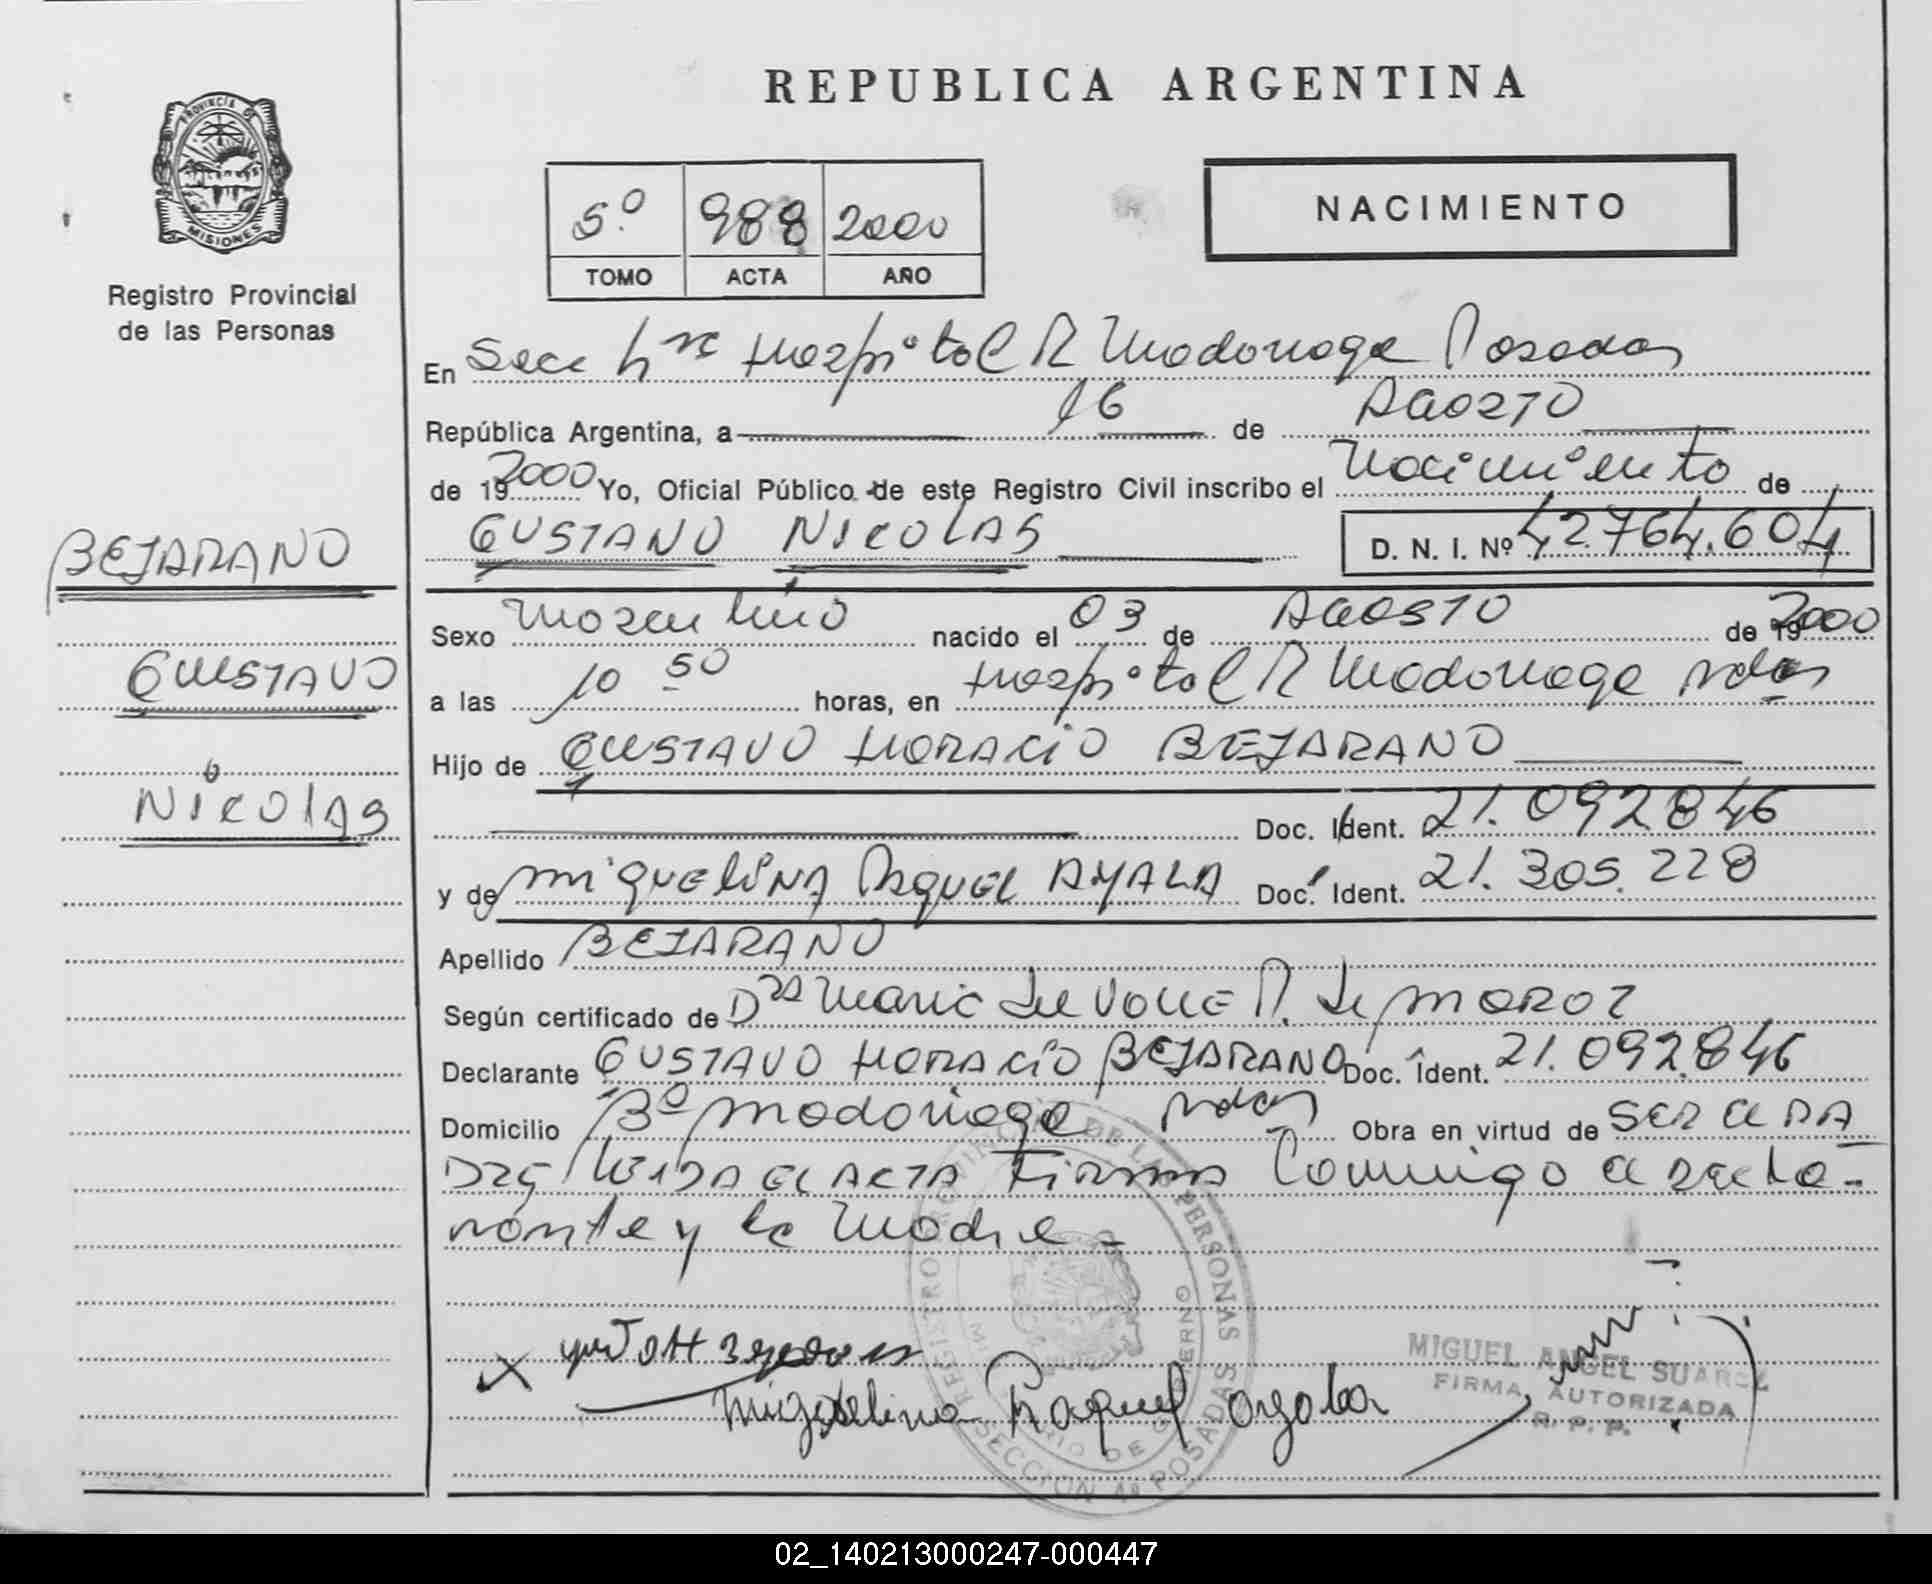 REPUBLICA ARGENTINA
PROVINCIA DE
MISIONES
Registro Provincial
de las Personas
5º 988 2000
TOMO ACTA AÑO
NACIMIENTO
En Secc Hospital R Madariaga Posadas
República Argentina, a 16 de AGOSTO
de 192000 Yo, Oficial Público de este Registro Civil inscribo el Nacimiento de
GUSTAVO NICOLAS D. N. I. Nº 42.764.604
BEJARANO
GUSTAVO
NICOLAS
Sexo Masculino nacido el 03 de AGOSTO de 192000
a las 10 50 horas, en Hospital R Madariaga Pdas
Hijo de GUSTAVO HORACIO BEJARANO
Doc. Ident. 21.092846
y de MIQUELINA RAQUEL AYALA Doc. Ident. 21.305.228
Apellido BEJARANO
Según certificado de Dra Maria del VALLE R. de MOROZ
Declarante GUSTAVO HORACIO BEJARANO Doc. Ident. 21.092.846
Domicilio Bº Madariaga Pdas Obra en virtud de SER
LEIDA EL ACTA FIRMA Conmigo el decla-
rante y la Madre -
Miguelina Raquel Ayala
MIGUEL ANGEL SUAREZ
FIRMA AUTORIZADA
R. P. P.
REGISTRO PROVINCIAL DE LAS PERSONAS
MINISTERIO DE GOBIERNO
SECCION 4ª POSADAS
02_140213000247-000447